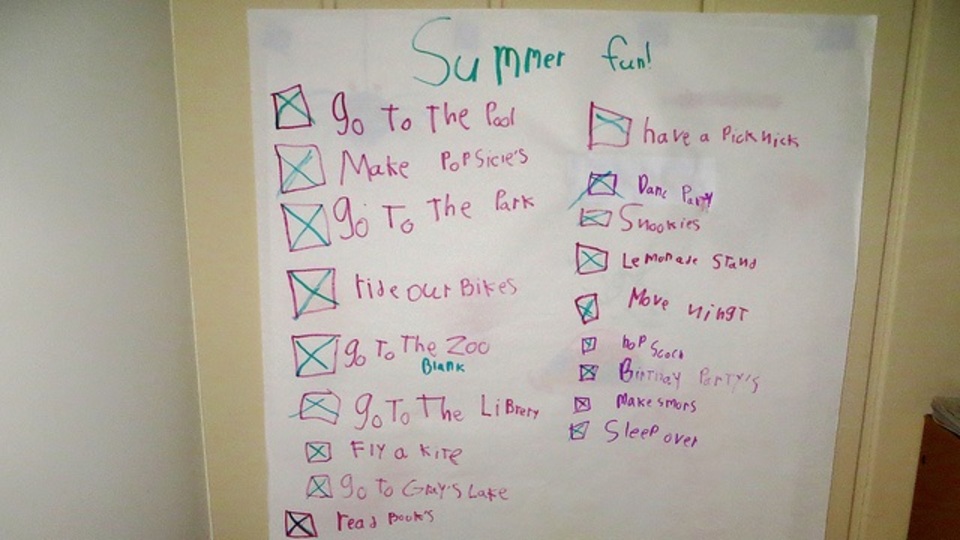 Summer fun!
go To The Pool
Make PoPsicie's
go To The Park
ride our Bikes
go To The Zoo
Blank
go To The Librery
Fly a kite
go To Gray's Lake
read Book's
have a Picknick
Danc Party
Snookies
Lemonade Stand
Move ningt
hop Scoch
Birthday Party's
Make smors
Sleep over